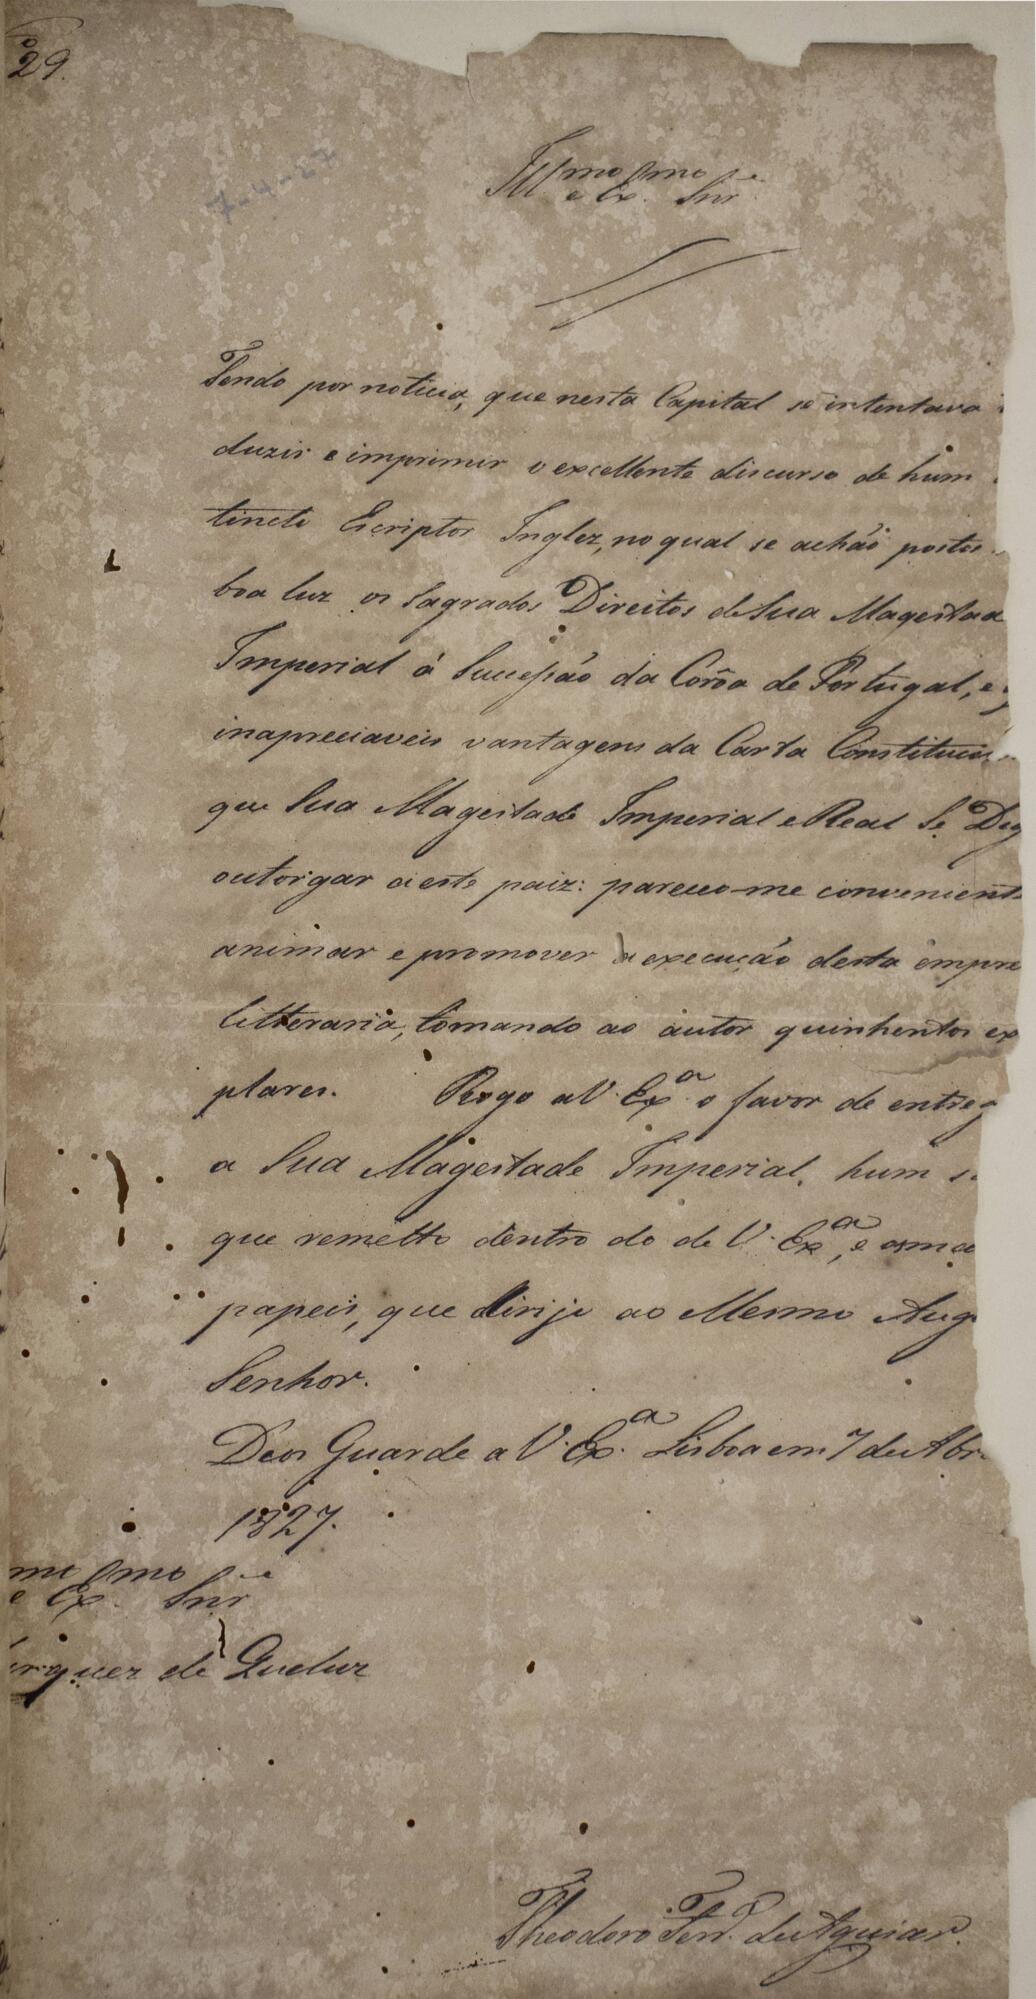 29.
7-4-27
Ill.mo e Ex.mo Snr.
Tendo por noticia, que nesta Capital se intentava
duzir e imprimir o excellente discurso de hum
tincto Escriptor Inglez, no qual se achão postos
boa luz os Sagrados Direitos de Sua Magestad
Imperial á Successão da Corôa de Portugal, e
inapreciaveis vantagens da Carta Constituci
que Sua Magestade Imperial e Real Se Dig
outorgar a este paiz: pareceo-me convenient
animar e promover a execução desta empre
litteraria, tomando ao autor quinhentos ex
plares. Rogo a V. Ex.a o favor de entreg
a Sua Magestade Imperial, hum
que remetto dentro do de V. Ex.a, e os mais
papeis, que dirijo ao Mesmo Aug
Senhor.
Deos Guarde a V. Ex.a Lisboa em 7 de Abr
1827.
mo e Ex.mo Snr
arquez de Queluz
Theodoro Ferr.a de Aguiar.